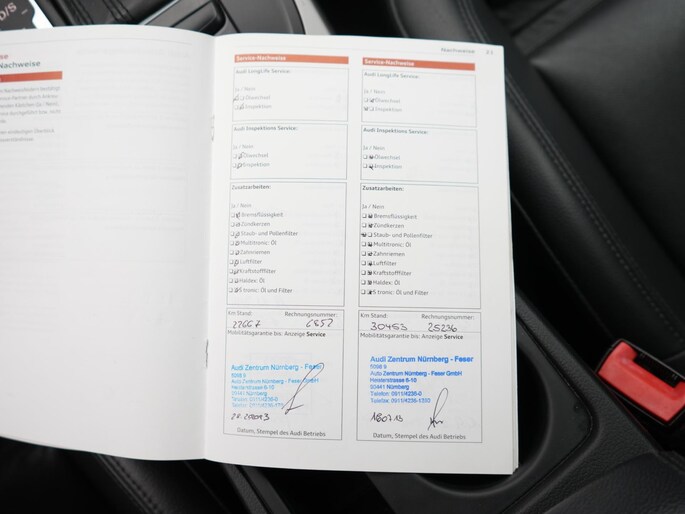 Nachweise
Service-Nachweise
Audi LongLife Service:
Ja / Nein
Ölwechsel
Inspektion
Audi Inspektions Service:
Ja / Nein
Ölwechsel
Inspektion
Zusatzarbeiten:
Ja / Nein
Bremsflüssigkeit
Zündkerzen
Staub- und Pollenfilter
Multitronic: Öl
Zahnriemen
Luftfilter
Kraftstofffilter
Haldex: Öl
S tronic: Öl und Filter
Km Stand: Rechnungsnummer:
22667
Mobilitätsgarantie bis: Anzeige Service
Audi Zentrum Nürnberg - Feser
5098 9
Auto Zentrum Nürnberg - Feser GmbH
90441 Nürnberg
Telefon: 0911/4236-0
Datum, Stempel des Audi Betriebs
Nachweise 23
Service-Nachweise
Audi LongLife Service:
Ja / Nein
Ölwechsel
Inspektion
Audi Inspektions Service:
Ja / Nein
Ölwechsel
Inspektion
Zusatzarbeiten:
Ja / Nein
Bremsflüssigkeit
Zündkerzen
Staub- und Pollenfilter
Multitronic: Öl
Zahnriemen
Luftfilter
Kraftstofffilter
Haldex: Öl
S tronic: Öl und Filter
Km Stand: Rechnungsnummer:
30453 25236
Mobilitätsgarantie bis: Anzeige Service
Audi Zentrum Nürnberg - Feser
5098 9
Auto Zentrum Nürnberg - Feser GmbH
90441 Nürnberg
Telefon: 0911/4236-0
Telefax: 0911/4236-1370
Datum, Stempel des Audi Betriebs